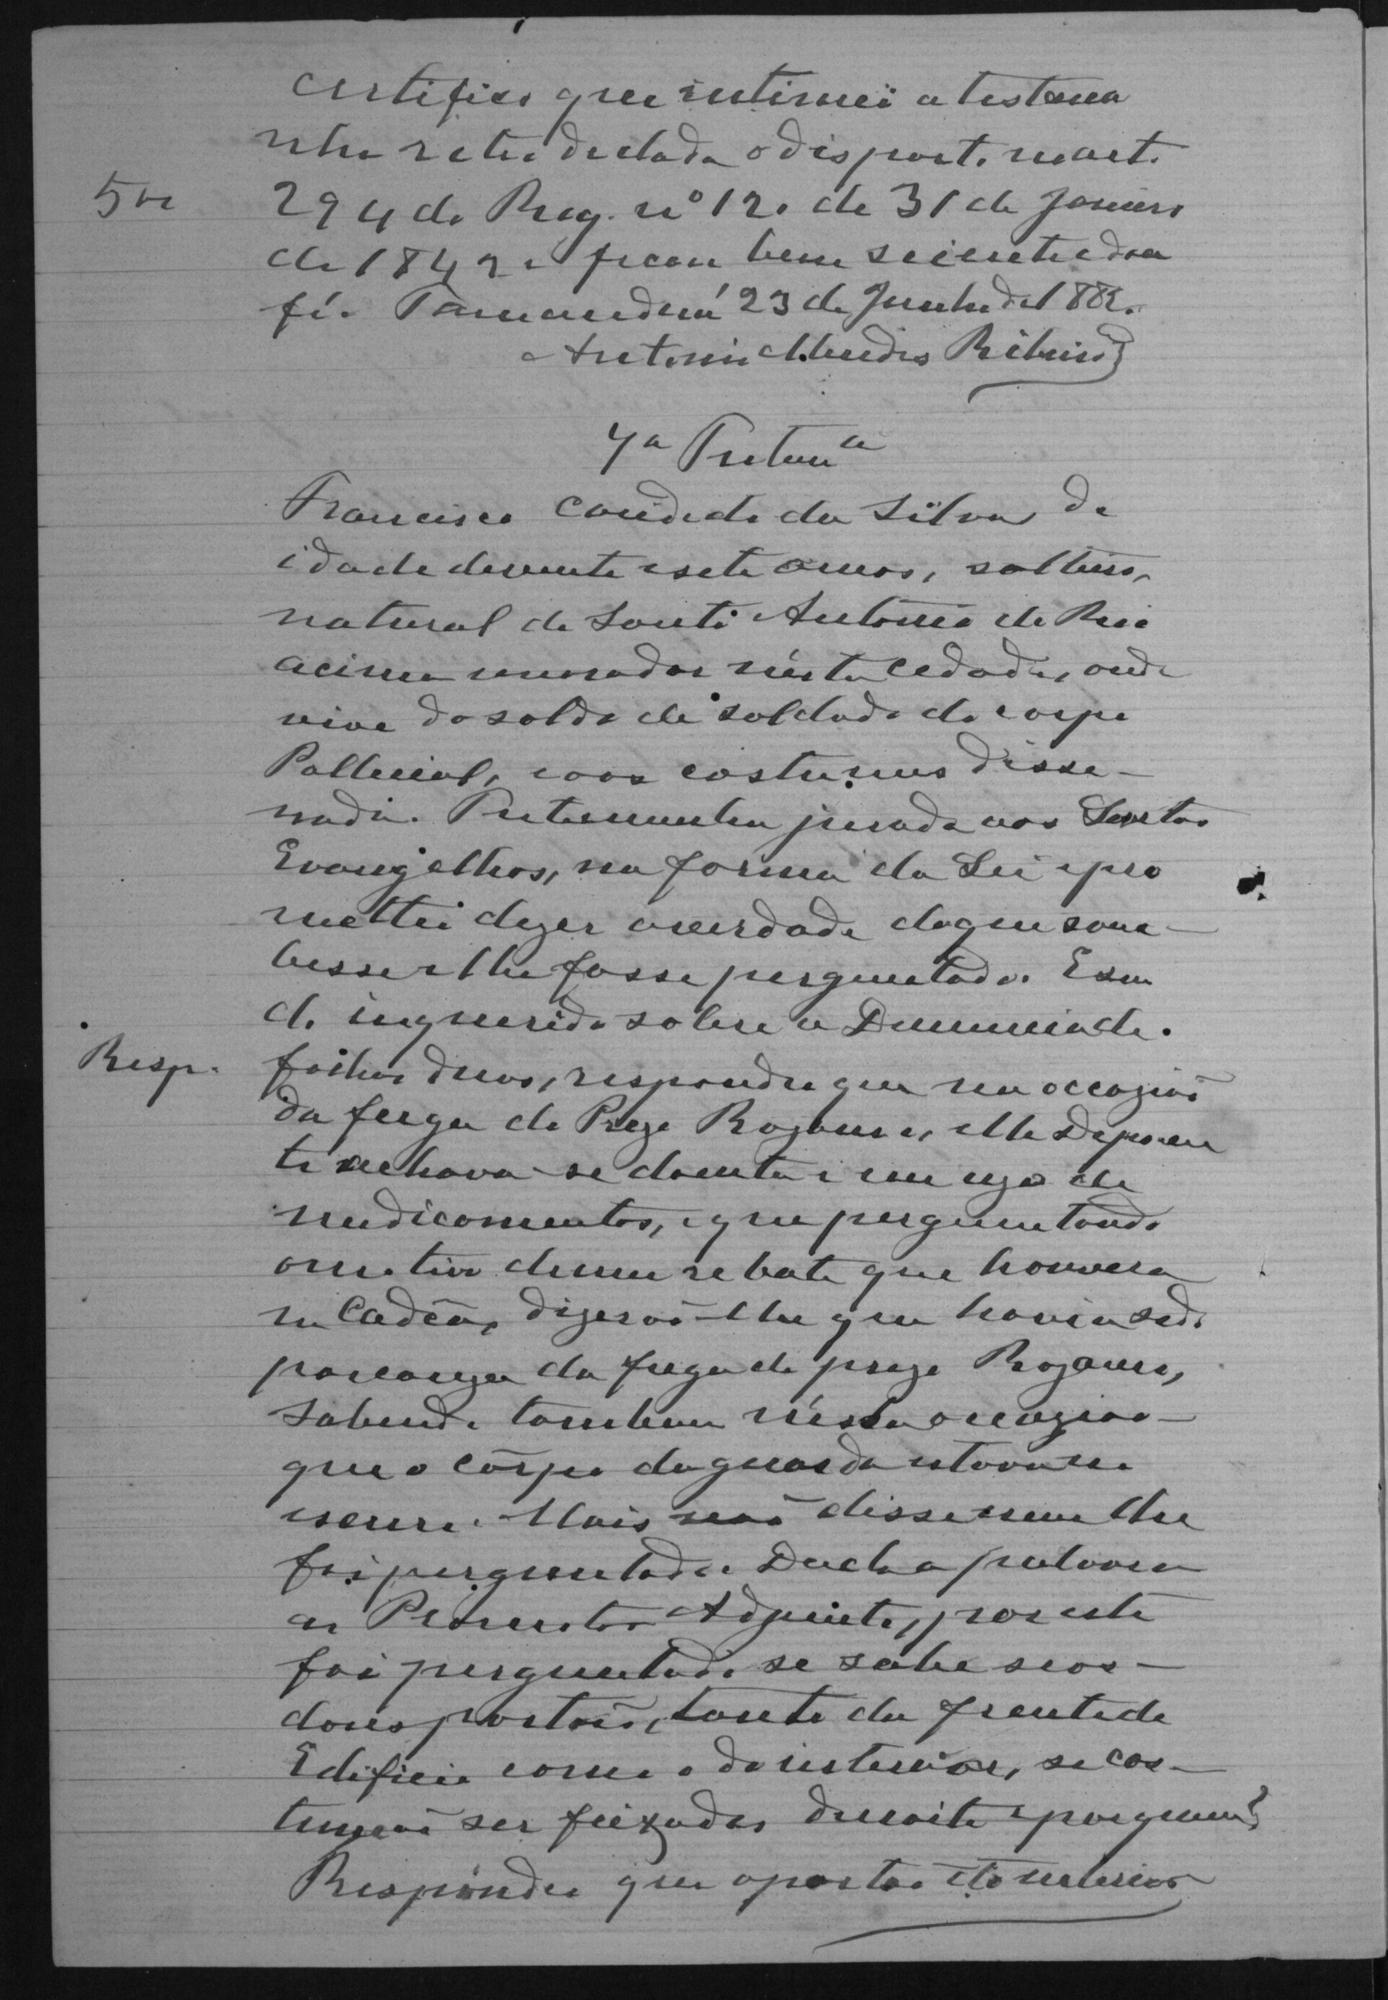 Certifico que intimei a testemu
nha retro declada o disposto no art.
5vr 294 do Reg. nº 120 de 31 de Janeiro
de 1842 e ficou bem sciente e dou
fé. Tamanduá 23 de Junho de 1882.
Antonio Mendes Ribeiro
4ª Testemª
Francisco Candido da Silva de
idade de vinte e sete annos, solteiro,
natural de Santo Antonio do Rio
acima morador n'ésta Cidade, onde
vive do soldo de soldado do corpo
Pollicial, e aos costumes disse
nada. Testemunha jurada aos Santos
Evangelhos, na forma da Lei e pro
metteo dizer a verdade do que sou-
besse e lhe fosse perguntado. E sen
do inquerido sobre a Denuncia de
Resp. folhas duas, respondeo que na occazião
da fuga do Prezo Rozaura, elle Depoen
te achava-se doente e em uzo de
medicamentos, e que perguntando
o motivo de um rebate que houvera
na Cadêa, dizerão-lhe que havia sido
por cauza da fuga do prezo Rozaura,
sabendo tambem n'éssa occazião
que o côrpo da guarda estava no
escuro. Mais não disse nem lhe
foi perguntado. Dada a palavra
ao Promotor Adjunto, por este
foi perguntado se sabe se os
dous portões, tanto da frente do
Edificio como o do interior, se cos-
tumão ser feixados de noite e por quem?
Respondeo que o portão do interior